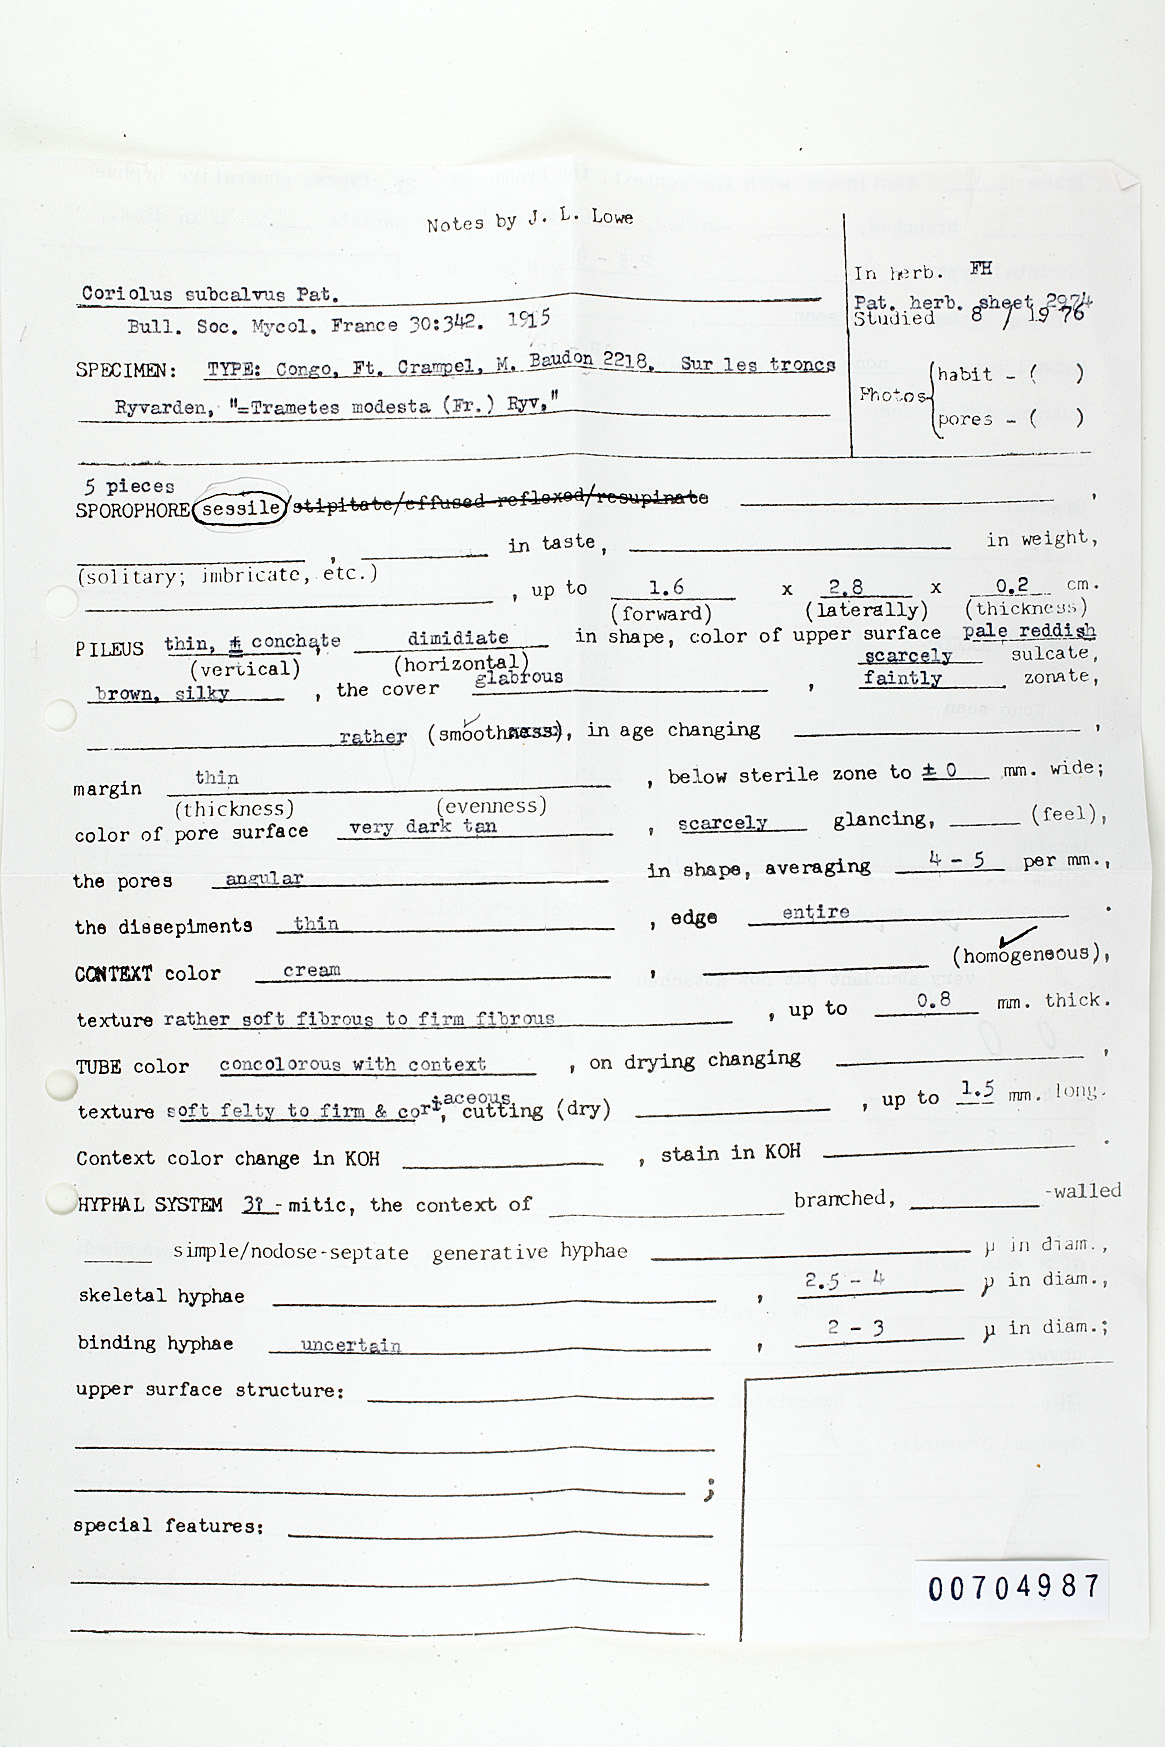 Notes by J. L. Lowe
In herb. FH
Coriolus subcalvus Pat.
Pat. herb. sheet 2974
Bull. Soc. Mycol. France 30:342. 1915
Studied 8 / 19 76
SPECIMEN: TYPE: Congo, Ft. Crampel, M. Baudon 2218. Sur les troncs
Photos habit - ( )
Ryvarden, "=Trametes modesta (Fr.) Ryv,"
pores - ( )
5 pieces
SPOROPHORE sessile/stipitate/effused-reflexed/resupinate ,
, in taste, in weight,
(solitary; imbricate, etc.)
, up to 1.6 x 2.8 x 0.2 cm.
(forward) (laterally) (thickness)
PILEUS thin, ± conchate, dimidiate in shape, color of upper surface pale reddish
(vertical) (horizontal) scarcely sulcate,
brown, silky , the cover glabrous , faintly zonate,
rather (smoothness), in age changing ,
margin thin , below sterile zone to ± 0 mm. wide;
(thickness) (evenness)
color of pore surface very dark tan , scarcely glancing, (feel),
the pores angular in shape, averaging 4 - 5 per mm.,
the dissepiments thin , edge entire .
CONTEXT color cream , (homogeneous),
texture rather soft fibrous to firm fibrous , up to 0.8 mm. thick.
TUBE color concolorous with context , on drying changing ,
texture soft felty to firm & coriaceous, cutting (dry) , up to 1.5 mm. long.
Context color change in KOH , stain in KOH .
HYPHAL SYSTEM 3? -mitic, the context of branched, -walled
simple/nodose-septate generative hyphae µ in diam.,
skeletal hyphae , 2.5 - 4 µ in diam.,
binding hyphae uncertain , 2 - 3 µ in diam.;
upper surface structure:
;
special features:
00704987